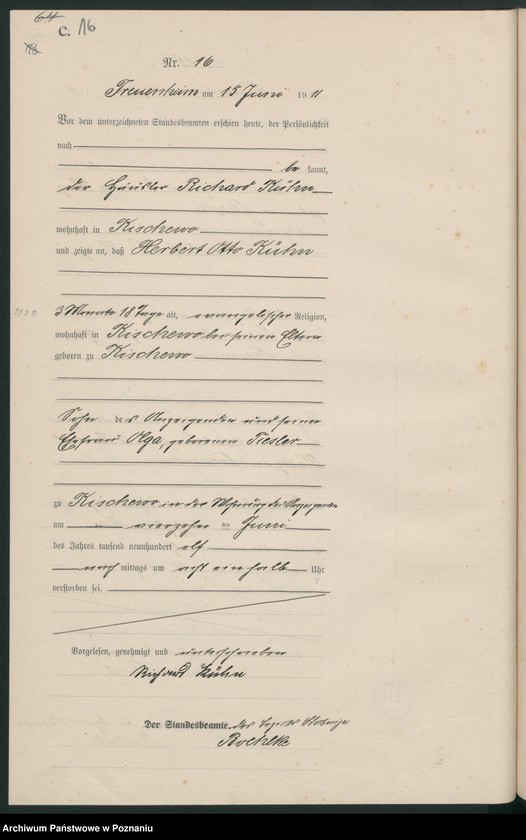 64
C. 16
Nr. 16
Treuenheim am 15 Juni 19 11
Vor dem unterzeichneten Standesbeamten erschien heute, der Persönlichkeit
nach
be kannt,
der Häusler Richard Kühn
wohnhaft in Kischewo
und zeigte an, daß Herbert Otto Kühn
3 Monate 18 Tage alt, evangelischer Religion,
wohnhaft in Kischewo bei seinen Eltern
geboren zu Kischewo
Sohn des Anzeigenden und seiner
Ehefrau Olga, geborenen Tiesler
zu Kischewo in der Wohnung des Anzeigenden
am vierzehn ten Juni
des Jahres tausend neunhundert elf
nach mittags um acht einhalb Uhr
verstorben sei.
Vorgelesen, genehmigt und unterschrieben
Richard Kühn
Der Standesbeamte des Bezirks
Boehlke
Archiwum Państwowe w Poznaniu